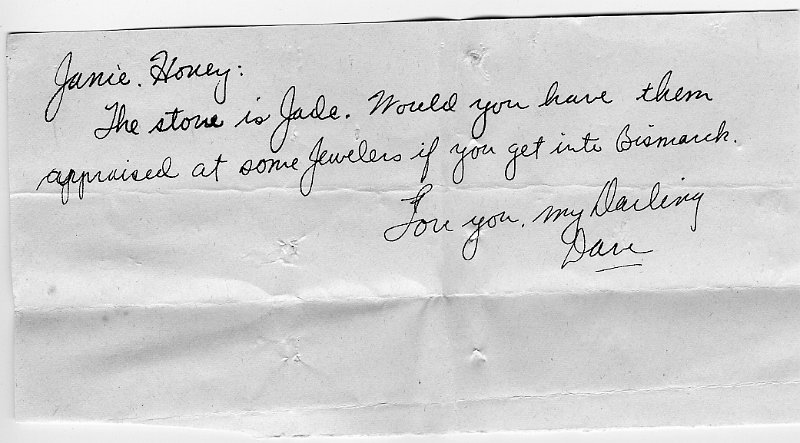 Janie. Honey:
The stone is Jade. Would you have them
appraised at some Jewelers if you get into Bismarck.
For you, my Darling
Dave